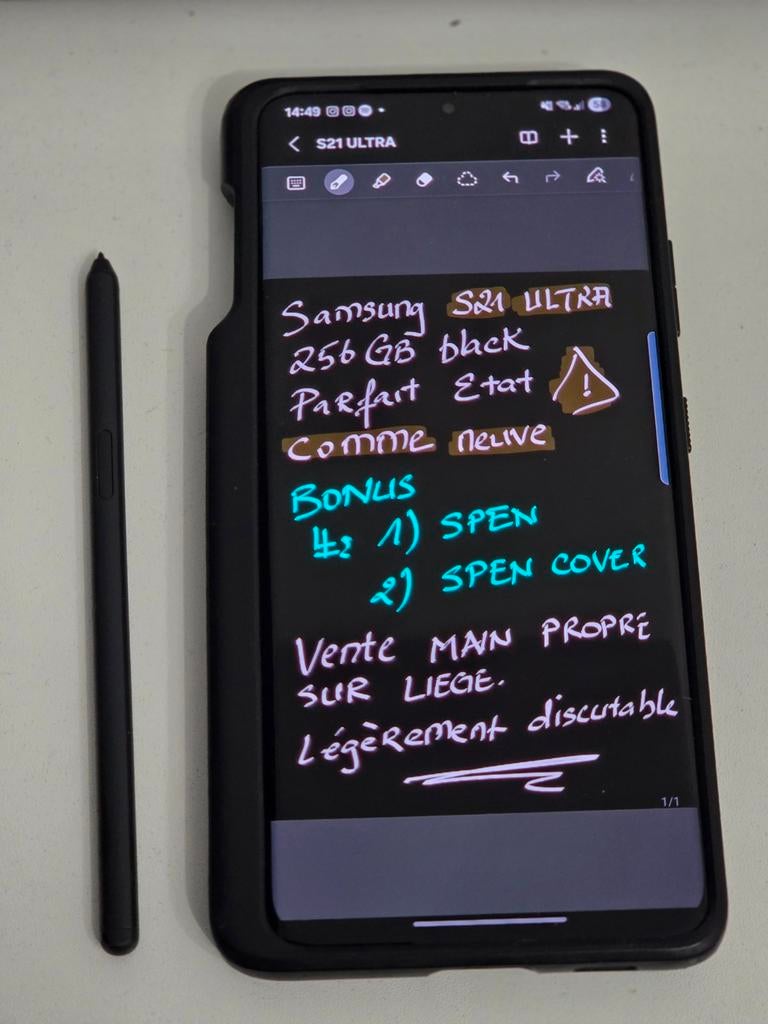 14:49
S21 ULTRA
Samsung S21 ULTRA
256 GB black
Parfait Etat !
Comme neuve
BONUS
1) SPEN
2) SPEN COVER
Vente MAIN PROPRE
SUR LIEGE.
Légèrement discutable
1/1